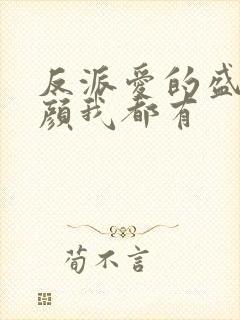 反派愛的盛
顔我都有
荀不言